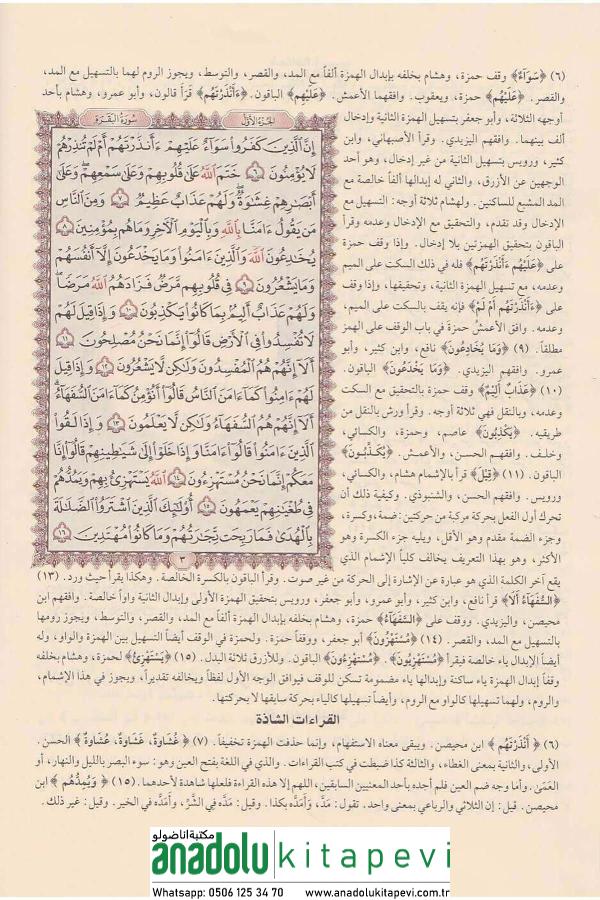 (٦) ﴿سَوَآءٌ﴾ وقف حمزة، وهشام بخلفه بإبدال الهمزة ألفاً مع المد، والقصر، والتوسط، ويجوز الروم لهما بالتسهيل مع المد،
والقصر. ﴿عَلَيْهُم﴾ حمزة، ويعقوب. وافقهما الأعمش. ﴿عَلَيْهِم﴾ الباقون. ﴿ءَأَنذَرْتَهُم﴾ قرأ قالون، وأبو عمرو، وهشام بأحد
أوجهه الثلاثة، وأبو جعفر بتسهيل الهمزة الثانية وإدخال
ألف بينهما. وافقهم اليزيدي. وقرأ الأصبهاني، وابن
كثير، ورويس بتسهيل الثانية من غير إدخال، وهو أحد
الوجهين عن الأزرق، والثاني له إبدالها ألفا خالصة مع
المد المشبع للساكنين. ولهشام ثلاثة أوجه: التسهيل مع
الإدخال وقد تقدم، والتحقيق مع الإدخال وعدمه وقرأ
الباقون بتحقيق الهمزتين بلا إدخال. وإذا وقف حمزة
على ﴿عَلَيْهُم ءَأَنذَرْتَهُم﴾ فله في ذلك السكت على الميم
وعدمه، مع تسهيل الهمزة الثانية، وتحقيقها، وإذا وقف
على ﴿ءَأَنذَرْتَهُم أَمْ لَمْ﴾ فإنه يقف بالسكت على الميم،
وعدمه. وافق الأعمشُ حمزة في باب الوقف على الهمز
مطلقاً. (٩) ﴿وَمَا يُخَادِعُونَ﴾ نافع، وابن كثير، وأبو
عمرو. وافقهم اليزيدي. ﴿وَمَا يَخْدَعُونَ﴾ الباقون.
(١٠) ﴿عَذَابٌ أَلِيمٌ﴾ وقف حمزة بالتحقيق مع السكت
وعدمه، وبالنقل فهي ثلاثة أوجه. وقرأ ورش بالنقل من
طريقيه. ﴿يَكْذِبُونَ﴾ عاصم، وحمزة، والكسائي،
وخلف. وافقهم الحسن، والأعمش. ﴿يُكَذِّبُونَ﴾
الباقون. (١١) ﴿قِيلَ﴾ قرأ بالإشمام هشام، والكسائي،
ورويس. وافقهم الحسن، والشنبوذي. وكيفية ذلك أن
تحرك أول الفعل بحركة مركبة من حركتين: ضمة، وكسرة،
وجزء الضمة مقدم وهو الأقل، ويليه جزء الكسرة وهو
الأكثر، وهو بهذا التعريف يخالف كلياً الإشمام الذي
الجزء الأول
سورة البقرة
إِنَّ ٱلَّذِينَ كَفَرُوا۟ سَوَآءٌ عَلَيْهِمْ ءَأَنذَرْتَهُمْ أَمْ لَمْ تُنذِرْهُمْ
لَا يُؤْمِنُونَ ٦ خَتَمَ ٱللَّهُ عَلَىٰ قُلُوبِهِمْ وَعَلَىٰ سَمْعِهِمْ ۖ وَعَلَىٰٓ
أَبْصَٰرِهِمْ غِشَٰوَةٌ ۖ وَلَهُمْ عَذَابٌ عَظِيمٌ ٧ وَمِنَ ٱلنَّاسِ
مَن يَقُولُ ءَامَنَّا بِٱللَّهِ وَبِٱلْيَوْمِ ٱلْءَاخِرِ وَمَا هُم بِمُؤْمِنِينَ ٨
يُخَٰدِعُونَ ٱللَّهَ وَٱلَّذِينَ ءَامَنُوا۟ وَمَا يَخْدَعُونَ إِلَّآ أَنفُسَهُمْ
وَمَا يَشْعُرُونَ ٩ فِى قُلُوبِهِم مَّرَضٌ فَزَادَهُمُ ٱللَّهُ مَرَضًا ۖ
وَلَهُمْ عَذَابٌ أَلِيمٌۢ بِمَا كَانُوا۟ يَكْذِبُونَ ١٠ وَإِذَا قِيلَ لَهُمْ
لَا تُفْسِدُوا۟ فِى ٱلْأَرْضِ قَالُوٓا۟ إِنَّمَا نَحْنُ مُصْلِحُونَ ١١
أَلَآ إِنَّهُمْ هُمُ ٱلْمُفْسِدُونَ وَلَٰكِن لَّا يَشْعُرُونَ ١٢ وَإِذَا قِيلَ
لَهُمْ ءَامِنُوا۟ كَمَآ ءَامَنَ ٱلنَّاسُ قَالُوٓا۟ أَنُؤْمِنُ كَمَآ ءَامَنَ ٱلسُّفَهَآءُ ۗ
أَلَآ إِنَّهُمْ هُمُ ٱلسُّفَهَآءُ وَلَٰكِن لَّا يَعْلَمُونَ ١٣ وَإِذَا لَقُوا۟
ٱلَّذِينَ ءَامَنُوا۟ قَالُوٓا۟ ءَامَنَّا وَإِذَا خَلَوْا۟ إِلَىٰ شَيَٰطِينِهِمْ قَالُوٓا۟ إِنَّا
مَعَكُمْ إِنَّمَا نَحْنُ مُسْتَهْزِءُونَ ١٤ ٱللَّهُ يَسْتَهْزِئُ بِهِمْ وَيَمُدُّهُمْ
فِى طُغْيَٰنِهِمْ يَعْمَهُونَ ١٥ أُو۟لَٰٓئِكَ ٱلَّذِينَ ٱشْتَرَوُا۟ ٱلضَّلَٰلَةَ
بِٱلْهُدَىٰ فَمَا رَبِحَت تِّجَٰرَتُهُمْ وَمَا كَانُوا۟ مُهْتَدِينَ ١٦
٣
يقع آخر الكلمة الذي هو عبارة عن الإشارة إلى الحركة من غير صوت. وقرأ الباقون بالكسرة الخالصة. وهكذا يقرأ حيث ورد. (١٣)
﴿السُّفَهَآءُ أَلَا﴾ قرأ نافع، وابن كثير، وأبو عمرو، وأبو جعفر، ورويس بتحقيق الهمزة الأولى وإبدال الثانية واواً خالصة. وافقهم ابن
محيصن، واليزيدي. ووقف على ﴿السُّفَهَآءُ﴾ حمزة، وهشام بخلفه بإبدال الهمزة ألفاً مع المد، والقصر، والتوسط، ويجوز رومها
بالتسهيل مع المد، والقصر. (١٤) ﴿مُسْتَهْزُونَ﴾ أبو جعفر، ووقفاً حمزة. ولحمزة في الوقف أيضاً التسهيل بين الهمزة والواو، وله
أيضاً الإبدال ياء خالصة فيقرأ ﴿مُسْتَهْزِيُونَ﴾. ﴿مُسْتَهْزِءُونَ﴾ الباقون. وللأزرق ثلاثة البدل. (١٥) ﴿يَسْتَهْزِئُ﴾ لحمزة، وهشام بخلفه
وقفاً إبدال الهمزة ياء ساكنة وإبدالها ياء مضمومة تسكن للوقف فيوافق الوجه الأول لفظاً ويخالفه تقديراً، ويجوز في هذا الإشمام،
والروم، ولهما تسهيلها كالواو مع الروم، وأيضاً تسهيلها كالياء بحركة سابقها لا بحركتها.
القراءات الشاذة
(٦) ﴿أَنْذَرْتَهُم﴾ ابن محيصن. ويبقى معناه الاستفهام، وإنما حذفت الهمزة تخفيفاً. (٧) ﴿غُشَاوَةٌ، غَشَاوَةٌ، عُشَاوَةٌ﴾ الحسن.
الأولى، والثانية بمعنى الغطاء، والثالثة كذا ضبطت في كتب القراءات. والذي في اللغة بفتح العين وهو: سوء البصر بالليل والنهار، أو
العَمَىٰ. وأما وجه ضم العين فلم أجده بأحد المعنيين السابقين، اللهم إلا هذه القراءة فلعلها شاهدة لأحدهما. (١٥) ﴿وَيُمِدُّهُم﴾ ابن
محيصن. قيل: إن الثلاثي والرباعي بمعنى واحد. تقول: مَدَّه وَأَمَدَّه بكذا. وقيل: مَدَّه في الشَّرِّ، وَأَمَدَّه في الخير. وقيل: غير ذلك.
مكتبة اناضولو
anadolukitapevi
Whatsapp: 0506 125 34 70 www.anadolukitapevi.com.tr